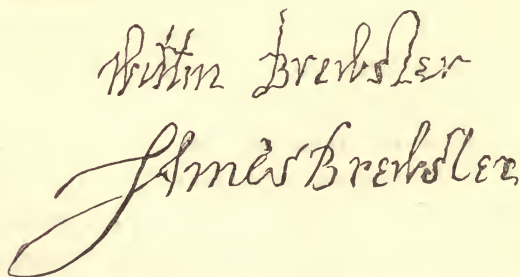 Willm Brewster
James Brewster